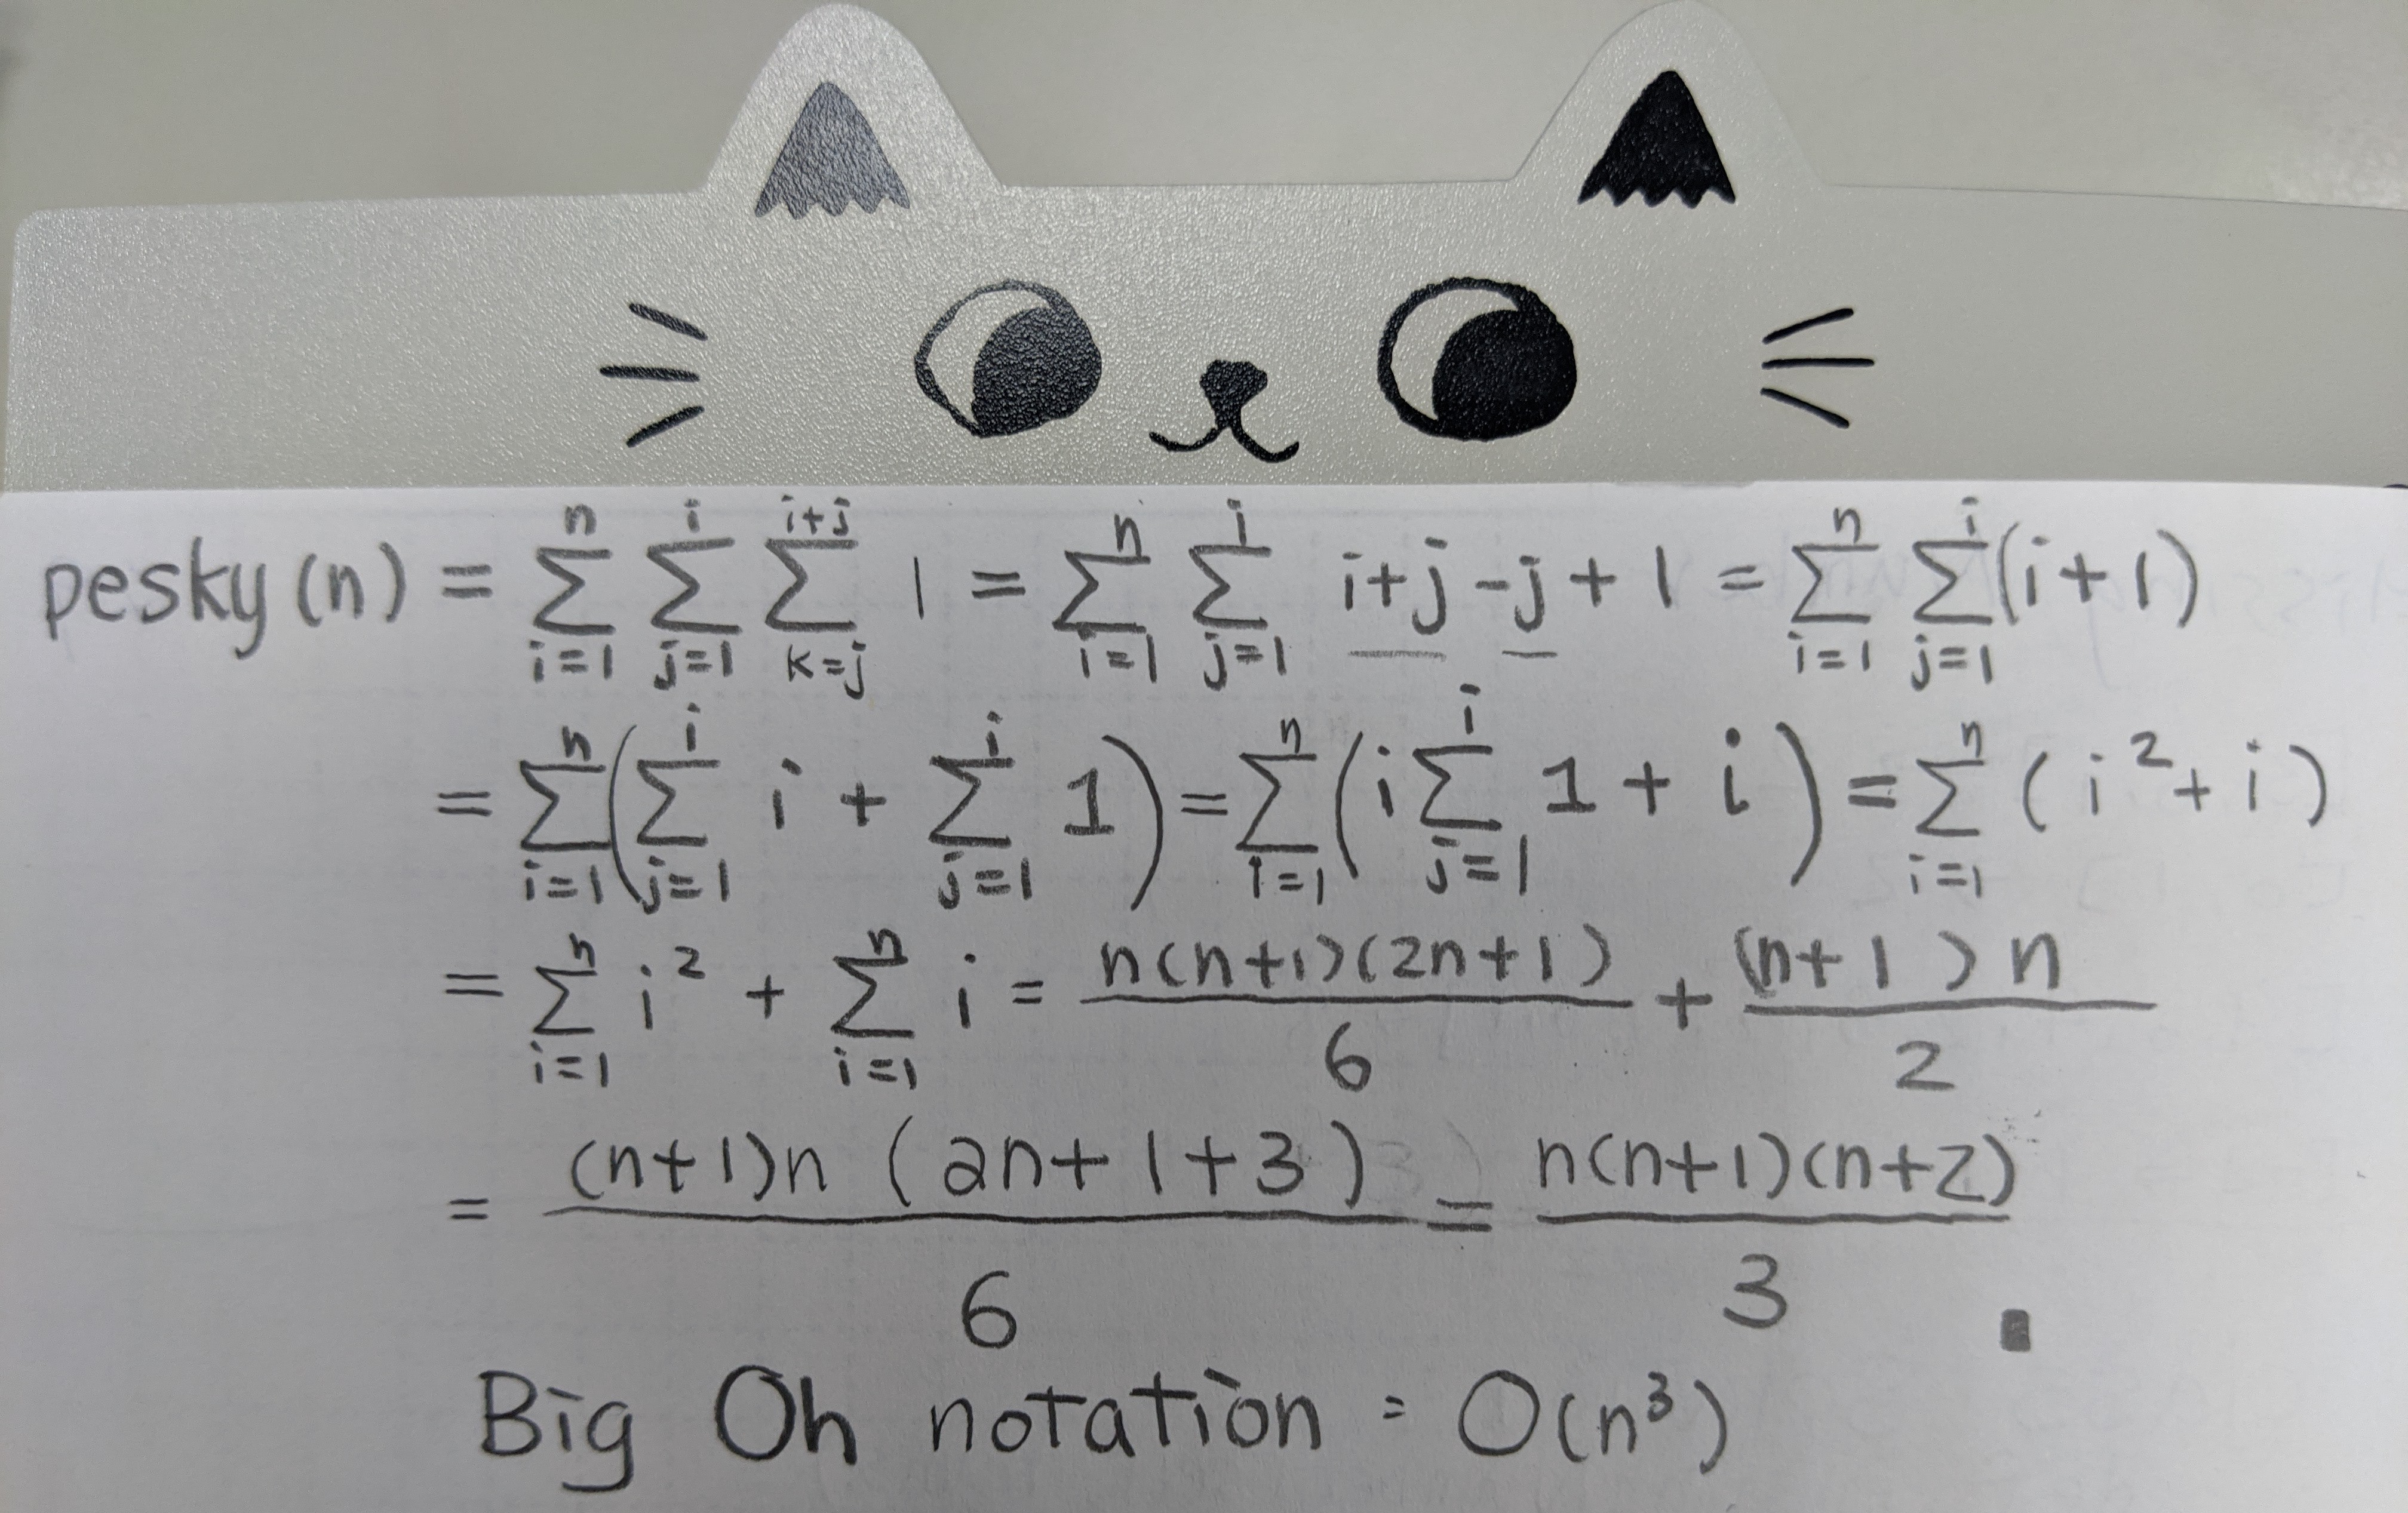 pesky(n) = \sum_{i=1}^{n} \sum_{j=1}^{i} \sum_{k=j}^{i+j} 1 = \sum_{i=1}^{n} \sum_{j=1}^{i} i+j-j+1 = \sum_{i=1}^{n} \sum_{j=1}^{i} (i+1)
= \sum_{i=1}^{n} ( \sum_{j=1}^{i} i + \sum_{j=1}^{i} 1 ) = \sum_{i=1}^{n} ( i \sum_{j=1}^{i} 1 + i ) = \sum_{i=1}^{n} ( i^2 + i )
= \sum_{i=1}^{n} i^2 + \sum_{i=1}^{n} i = \frac{n(n+1)(2n+1)}{6} + \frac{(n+1)n}{2}
= \frac{(n+1)n(2n+1+3)}{6} = \frac{n(n+1)(n+2)}{3} ∎
Big Oh notation = O(n^3)